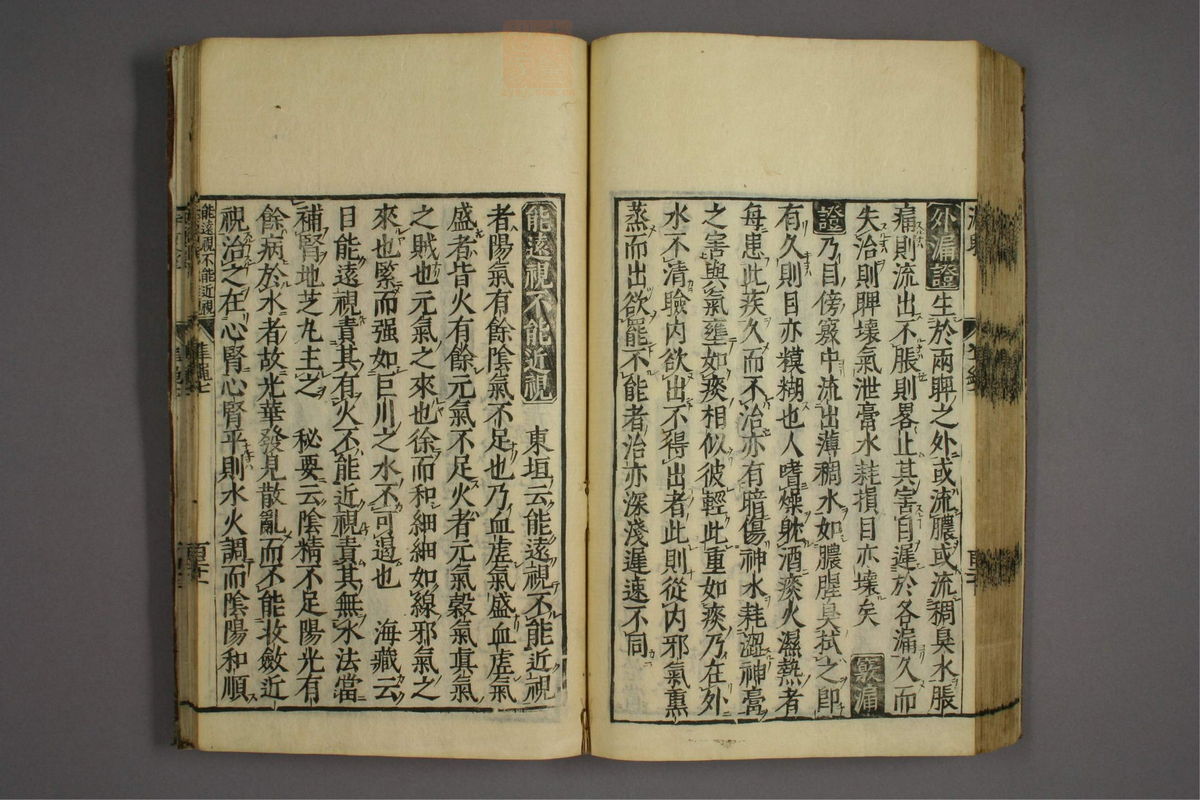 外漏證 生於兩睥之外或流膿或流稠臭水脹
痛則流出不脹則畧止其害自遲於各漏久而
失治則睥壞氣泄膏水耗損目亦壞矣 竅漏
證 乃目傍竅中流出薄稠水如膿腥臭拭之卽
有久則目亦糢糊也人嗜燥躭酒痰火濕熱者
每患此疾久而不治亦有暗傷神水耗澀神膏
之害與氣壅如痰相似彼輕此重如痰乃在外
水不清瞼内欲出不得出者此則從内邪氣熏
蒸而出欲罷不能者治亦深淺遲速不同
能遠視不能近視 東垣云能遠視不能近視
者陽氣有餘陰氣不足也乃血虛氣盛血虛氣
盛者皆火有餘元氣不足火者元氣穀氣眞氣
之賊也元氣之來也徐而和細細如線邪氣之
來也緊而强如巨川之水不可遏也 海藏云
目能遠視責其有火不能近視責其無水法當
補腎地芝丸主之 秘要云陰精不足陽光有
餘病於水者故光華發見散亂而不能收斂近
視治之在心腎心腎平則水火調而陰陽和順
能遠視不能近視